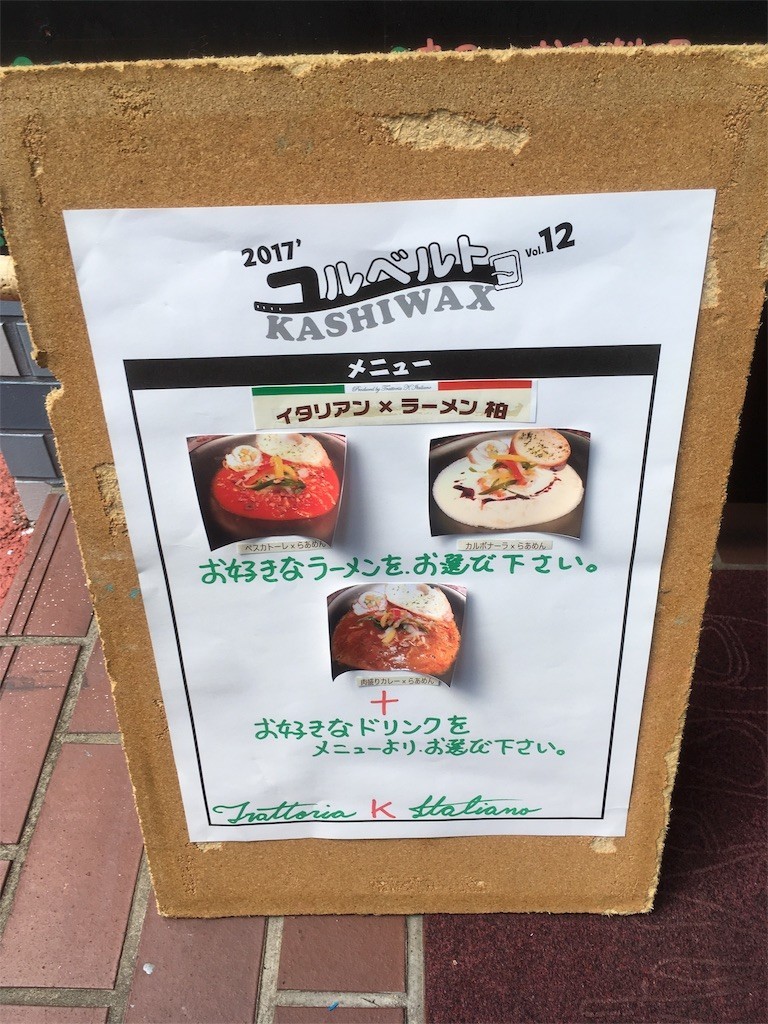 2017'
コルベルト
Vol.12
KASHIWAX
メニュー
Produced by Trattoria K Italiano
イタリアン×ラーメン 柏
ペスカトーレ×らあめん
カルボナーラ×らあめん
お好きなラーメンを、お選び下さい。
肉盛りカレー×らあめん
+
お好きなドリンクを
メニューより、お選び下さい。
Trattoria K Italiano